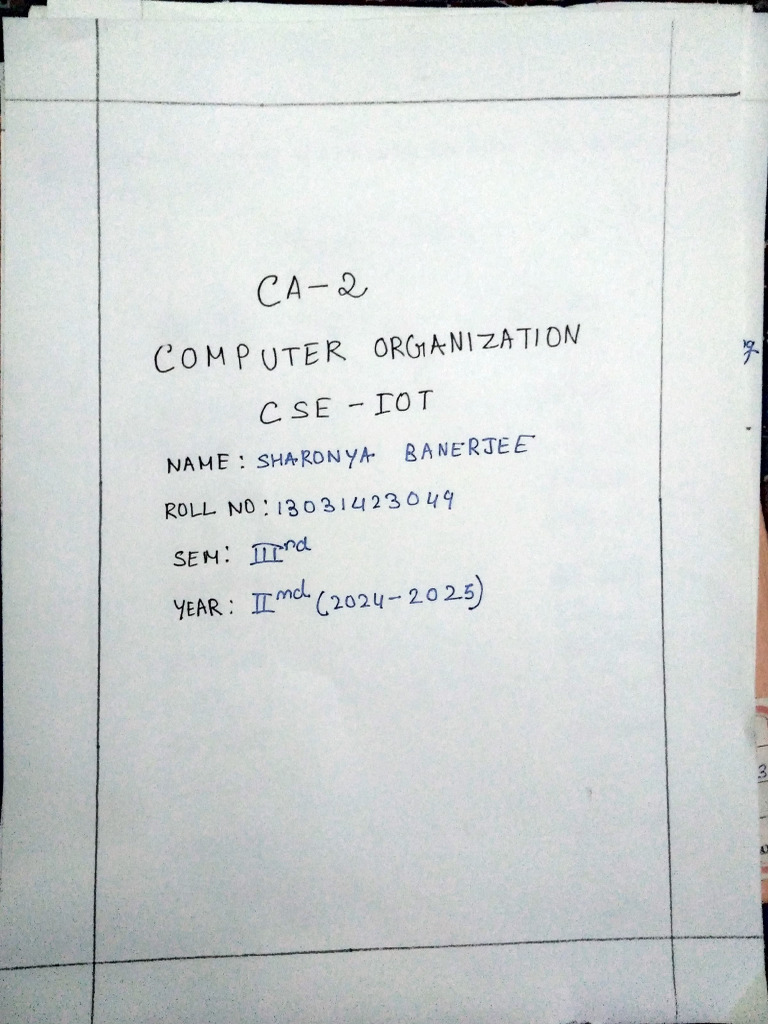 CA-2
COMPUTER ORGANIZATION
CSE-IOT
NAME: SHARONYA BANERJEE
ROLL NO: 13031423049
SEM: IIInd
YEAR: IInd (2024-2025)
3